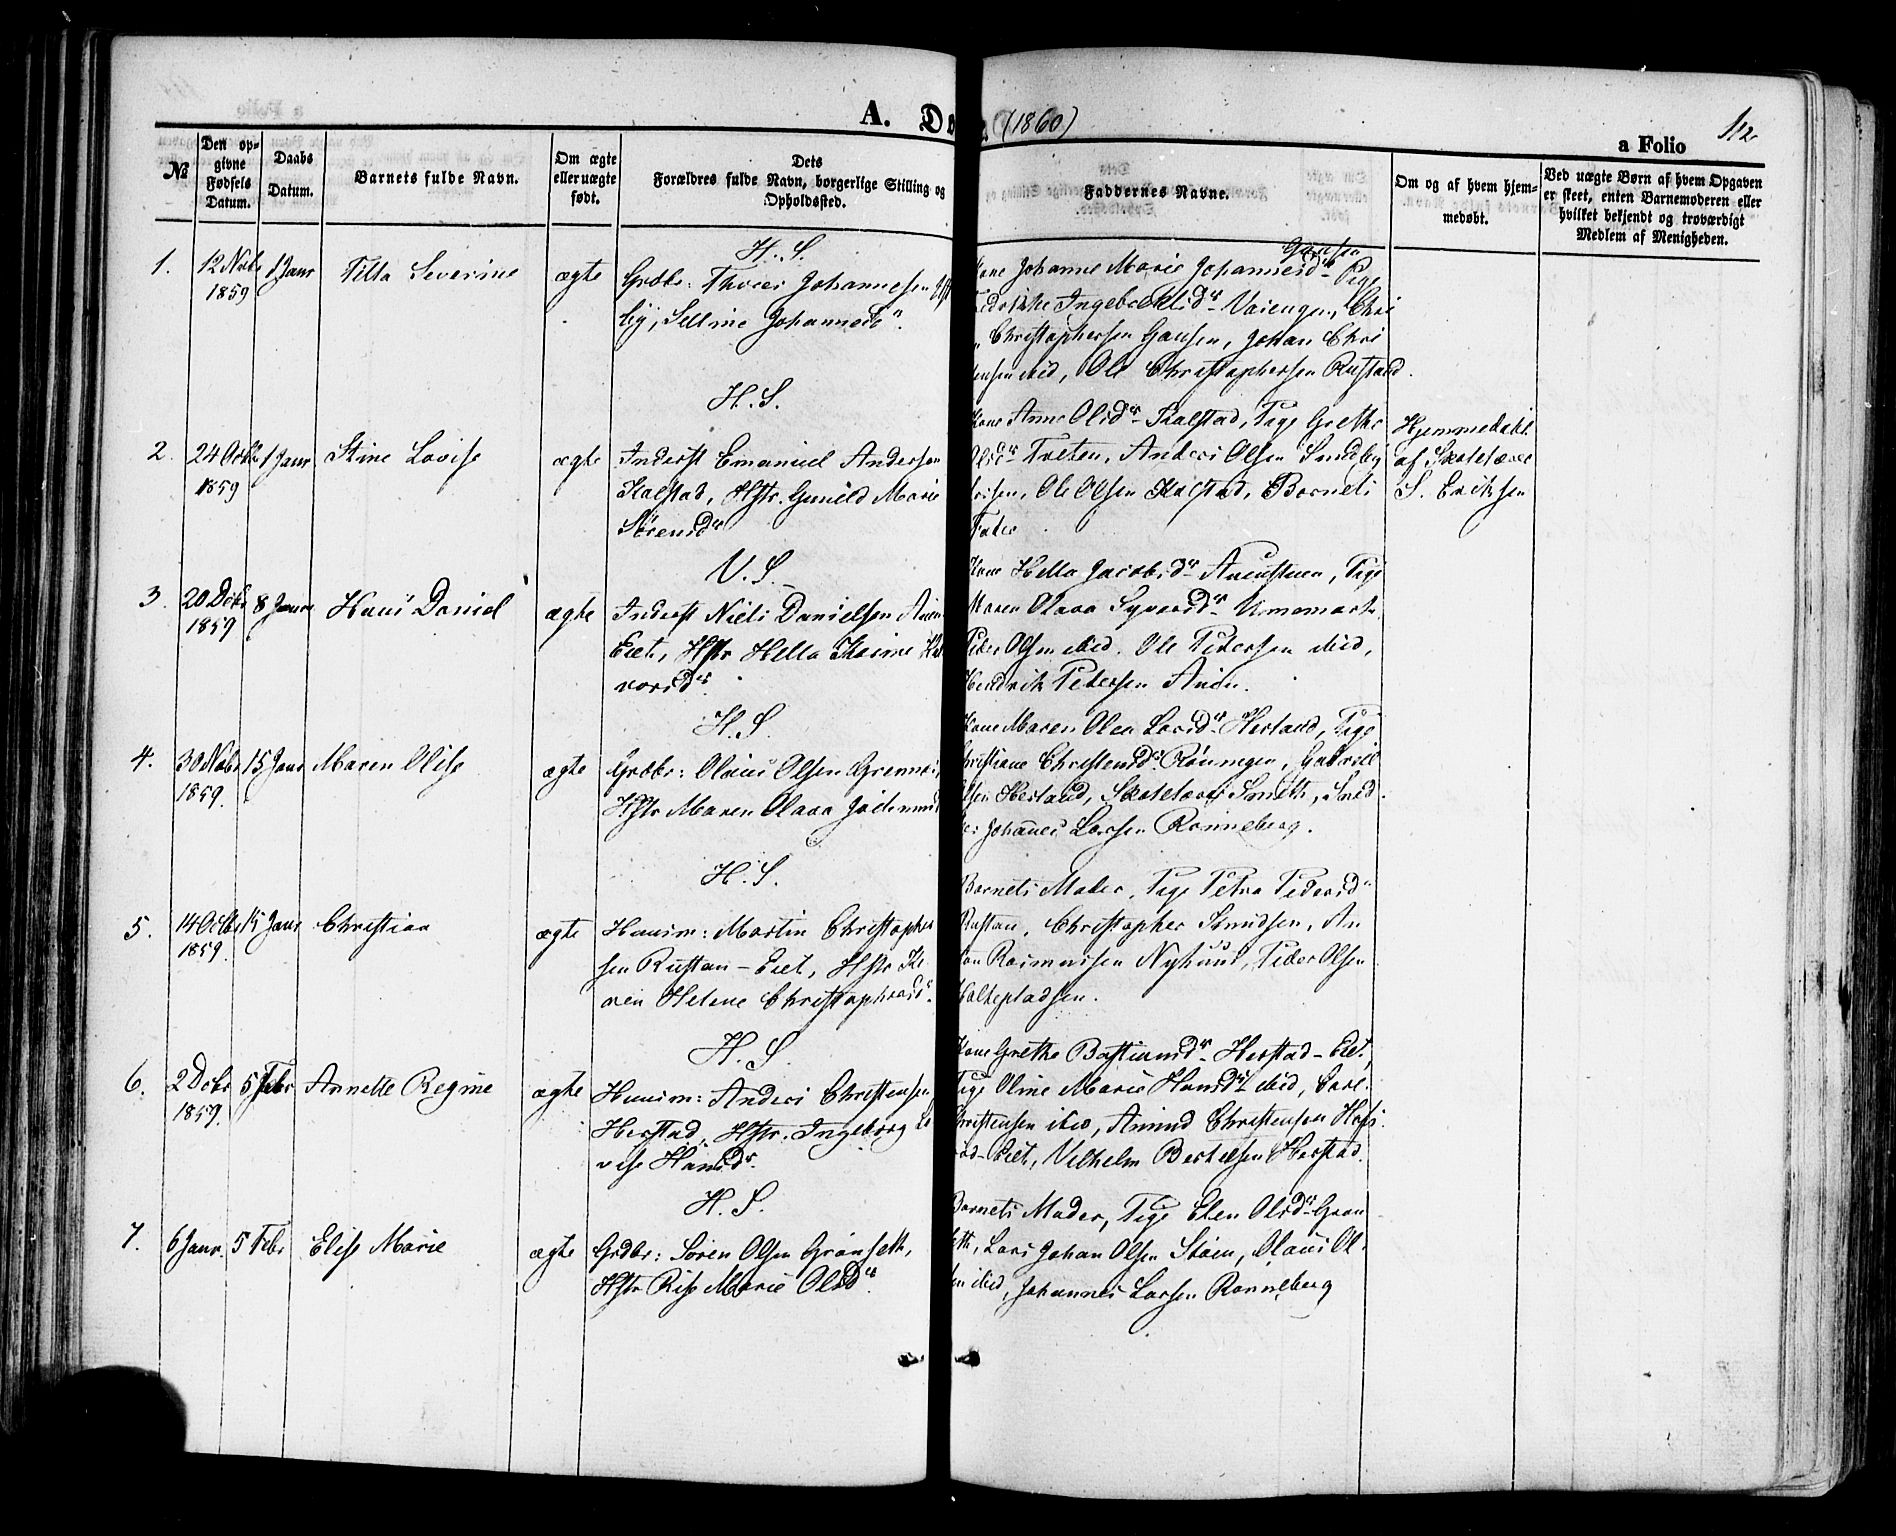 A. Dø (1860)
a Folio
№
Den op-
givne
Fødsels
Datum.
Daabs
Datum.
Barnets fulde Navn.
Om ægte
eller uægte
født.
Dets
Forældres fulde Navn, borgerlige Stilling og
Opholdssted.
Faddernes Navne.
Om og af hvem hjem-
medøbt.
Ved uægte Børn af hvem Opgaven
er skeet, enten Barnemoderen eller
hvilket bekjendt og troværdigt
Medlem af Menigheden.
H. S.
1.
12 Novbr
1859
1 Janr
Tilla Severine
ægte
Grdbr: Johannesen
by, Selline Johannesd
Kone Johanne Marie Johannesdr Pige
Ingebretsdr
Christophersen Hansen, Johan Chri
ibid, Ole Christophersen Rustad.
H. S.
2.
24 Octbr
1859
1 Janr
Stine Lovise
ægte
Inderst Emanuel Andersen
Kalstad, Hstr. Gunild Marie
Sörensdr
Kone Anne Olsdr Kalstad, Pige Grethe
Olsdr Tveten, Anders Olsen Sundby
Ole Olsen Kalstad, Barnets
Fader
Hjemmedøbt
af Skolelærer
S. Eriksen
V. S.
3.
20 Decbr
1859
8 Janr
Hans Daniel
ægte
Inderst Niels Danielsen
Eiet, Hstr Hella Karine
vorsdr.
Kone Hella Jacobsdr Pige
Maren Olava Syversdr
Peder Olsen ibid. Ole Pedersen ibid,
Hendrik Pedersen
H. S
4.
30 Novbr
1859.
15 Janr
Maren Olise
ægte
Grdbr: Olaus Olsen
Hstr Maren Olava
Kone Maren Olea Larsdr Herland, Pige
Christiane Christensdr. Röningen, Gabriel
Olsen Herland, Skolelærer Smith,
Johannes Larsen Rönneberg.
H. S.
5.
14 Octbr
1859.
15 Janr
Christian
ægte
Huusm: Martin Christopher
sen Rustan-Eiet, Hstr Ka-
ren Helene Christophersdr.
Barnets Moder, Pige Petra Pedersdr
Rustan, Christopher Knudsen, An
ton Rasmussen Nyhuus, Peder Olsen
Holtepladsen.
H. S
6.
2 Decbr
1859.
5 Febr
Annette Regine
ægte
Huusm: Anders Christensen
Herstad, Hstr. Ingeborg Lo
vise Hansdr.
Kone Grethe Bastiansdr Herstad-Eiet,
Pige Oline Marie Hansdr ibid, Carl
Christensen ibid, Amund Christensen
Eiet, Vilhelm Bertelsen Herstad.
H. S.
7.
6 Janr.
5 Febr
Elise Marie
ægte
Grdbr: Sören Olsen Grönseth,
Hstr Rise Marie Olsdr.
Barnets Moder, Pige Elen Olsdr Grön
seth, Lars Johan Olsen Stöen, Olaus Ol
sen ibid, Johannes Larsen Rönneberg